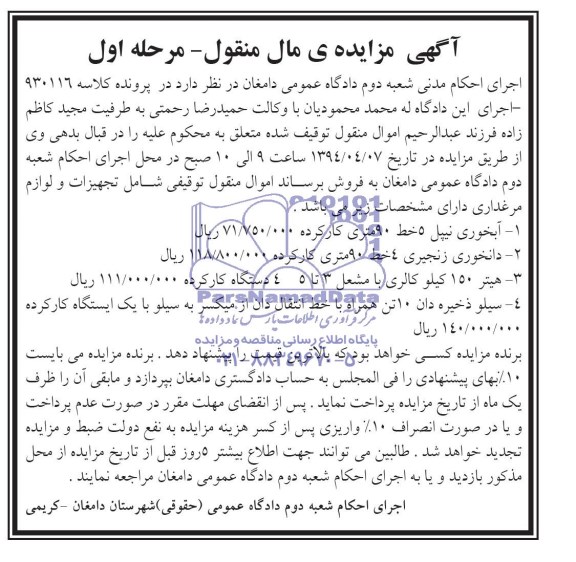 آگهی مزایده ی مال منقول- مرحله اول
اجرای احکام مدنی شعبه دوم دادگاه عمومی دامغان در نظر دارد در پرونده کلاسه ۹۳۰۱۱۶
-اجرای این دادگاه له محمد محمودیان با وکالت حمیدرضا رحمتی به طرفیت مجید کاظم
زاده فرزند عبدالرحیم اموال منقول توقیف شده متعلق به محکوم علیه را در قبال بدهی وی
از طریق مزایده در تاریخ ۱۳۹۴/۰۴/۰۷ ساعت ۹ الی ۱۰ صبح در محل اجرای احکام شعبه
دوم دادگاه عمومی دامغان به فروش برساند اموال منقول توقیفی شامل تجهیزات و لوازم
مرغداری دارای مشخصات زیر می باشد :
۱- آبخوری نیپل ۵خط ۹۰متری کارکرده ۷۱/۷۵۰/۰۰۰ ریال
۲- دانخوری زنجیری ۴خط ۹۰متری کارکرده ۱۱۸/۸۰۰/۰۰۰ ریال
۳- هیتر ۱۵۰ کیلو کالری با مشعل ۳ تا ۵ ۴ دستگاه کارکرده ۱۱۱/۰۰۰/۰۰۰ ریال
ParsNamadData
۴- سیلو ذخیره دان ۱۰تن همراه با خط انتقال دان از میکسر به سیلو با یک ایستگاه کارکرده
مرکز فرآوری اطلاعات پارس نماد داده ها
۱۴۰/۰۰۰/۰۰۰ ریال
پایگاه اطلاع رسانی مناقصه و مزایده
برنده مزایده کسی خواهد بود که بالاترین قیمت را پیشنهاد دهد . برنده مزایده می بایست
۰۲۱-۸۸۳۴۹۶۷۰-۵
۱۰٪بهای پیشنهادی را فی المجلس به حساب دادگستری دامغان بپردازد و مابقی آن را ظرف
یک ماه از تاریخ مزایده پرداخت نماید . پس از انقضای مهلت مقرر در صورت عدم پرداخت
و یا در صورت انصراف ۱۰٪ واریزی پس از کسر هزینه مزایده به نفع دولت ضبط و مزایده
تجدید خواهد شد . طالبین می توانند جهت اطلاع بیشتر ۵روز قبل از تاریخ مزایده از محل
مذکور بازدید و یا به اجرای احکام شعبه دوم دادگاه عمومی دامغان مراجعه نمایند .
اجرای احکام شعبه دوم دادگاه عمومی (حقوقی)شهرستان دامغان -کریمی